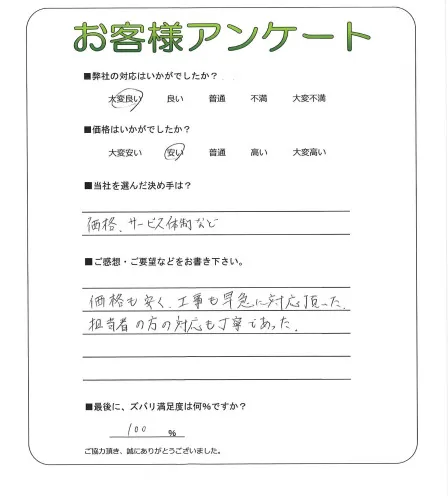 お客様アンケート
■弊社の対応はいかがでしたか？
大変良い 良い 普通 不満 大変不満
■価格はいかがでしたか？
大変安い 安い 普通 高い 大変高い
■当社を選んだ決め手は？
価格、サービス体制など
■ご感想・ご要望などをお書き下さい。
価格も安く、工事も早急に対応頂った.
担当者の方の対応も丁寧であった.
■最後に、ズバリ満足度は何％ですか？
100 ％
ご協力頂き、誠にありがとうございました。